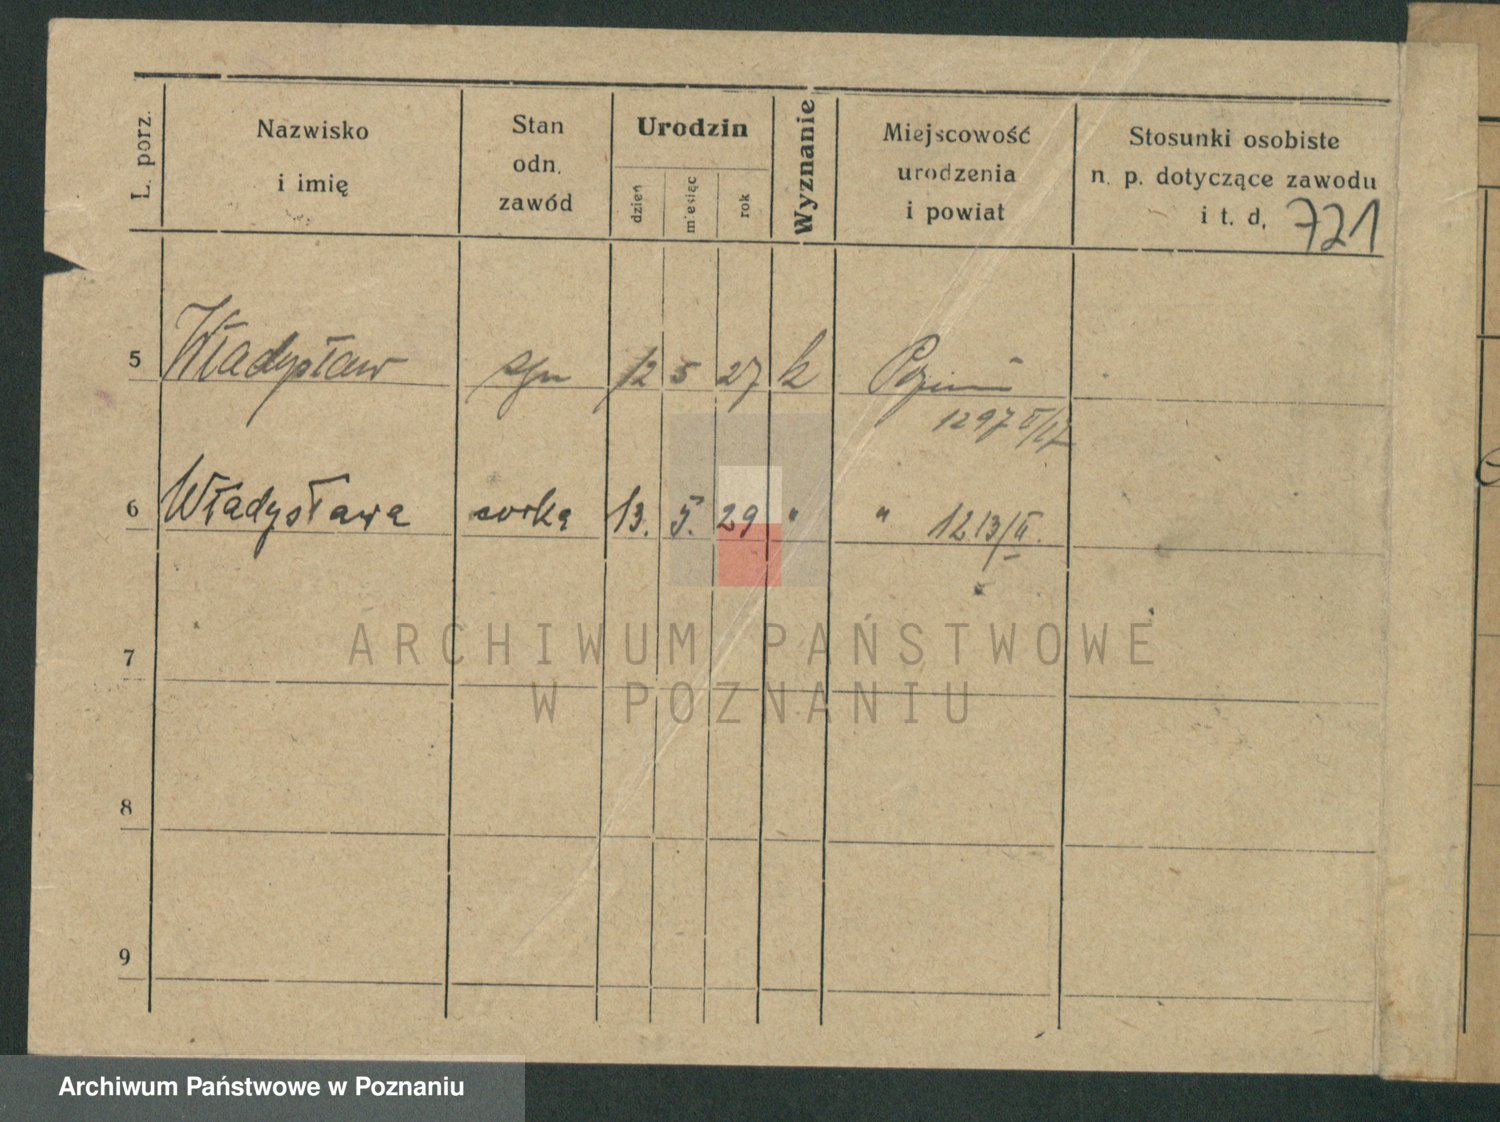 L. porz.
Nazwisko
i imię
Stan
odn.
zawód
Urodzin
dzień
miesiąc
rok
Wyznanie
Miejscowość
urodzenia
i powiat
Stosunki osobiste
n. p. dotyczące zawodu
i t. d. 721
5 Władysław syn 12 5 27 k
1297 II/27
6 Władysława corka 13. 5. 29 " " 1213/II.
7
8
9
ARCHIWUM PAŃSTWOWE
W POZNANIU
Archiwum Państwowe w Poznaniu